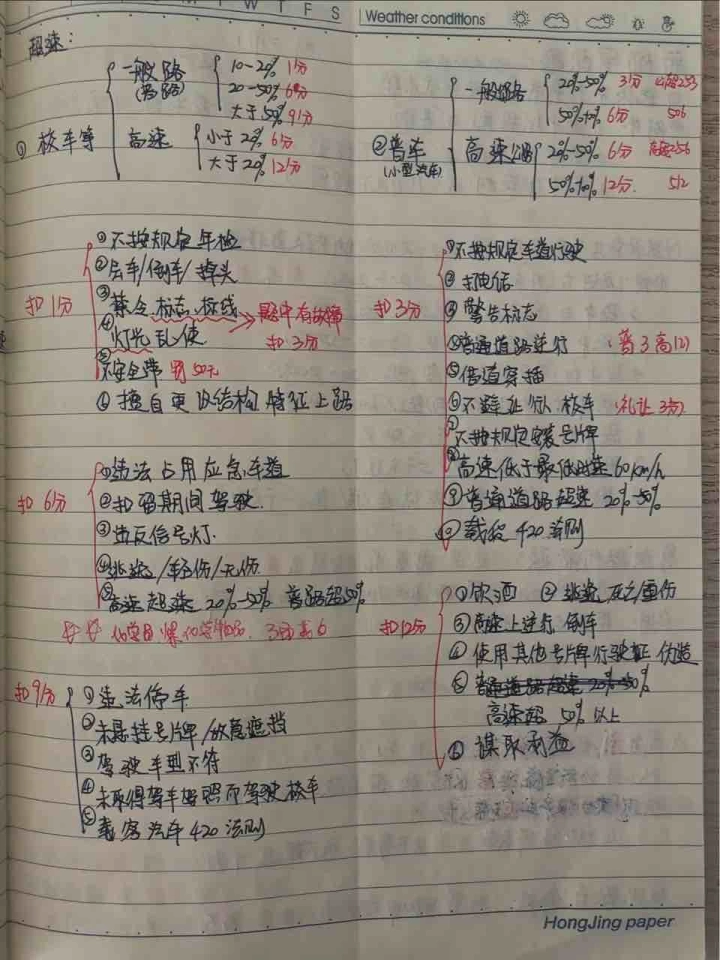 M T W T F S
Weather conditions
超速:
① 校车等
一般路
(普路)
10-20% 1分
20-50% 6分
大于50% 9分
高速
小于20% 6分
大于20% 12分
② 普车
(小型汽车)
一般路
20%-50% 3分
50%以上 6分 506
高速公路
20%-50% 6分 高速256
50%以上 12分. 512
扣1分
①不按规定年检
②会车/倒车/掉头
③禁令.标志.标线
④灯光乱使
→ 题中有故障
扣3分
⑤不安全带 罚50元
⑥擅自更改结构特征上路
扣3分
①不按规定车道行驶
②打电话
③警告标志
④普通道路逆行 (普3高12)
⑤借道穿插
⑥不避让行人.校车 (礼让3分)
⑦不按规定安装号牌
⑧高速低于最低时速60km/h
⑨普通道路超速 20%-50%
⑩载货 420法则
扣6分
①违法占用应急车道
②扣留期间驾驶.
③违反信号灯.
④逃逸/轻伤/无伤
⑤高速超速 20%-50% 普路超50%
扣9分
①违法停车
②未悬挂号牌/故意遮挡
③驾驶车型不符
④未取得驾车驾照而驾驶校车
⑤载客汽车420法则
扣12分
①饮酒 ②逃逸 死亡重伤
③高速上逆行.倒车
④使用其他号牌行驶证 伪造
⑤普通道路超速 20%-50%
高速超 50%以上
⑥谋取利益
HongJing paper